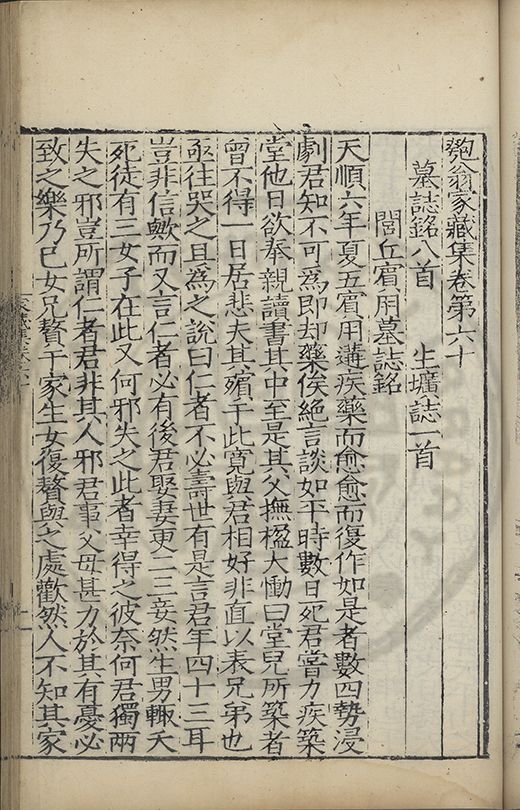 匏翁家藏集卷第六十
墓誌銘八首　生壙誌一首
閭丘賓用墓誌銘
天順六年夏五賓用遘疾藥而愈愈而復作如是者數四勢浸
劇君知不可為即却藥俟絕言談如平時數日死君嘗力疾築
堂他日欲奉親讀書其中至是其父撫楹大慟曰堂兒所築者
曾不得一日居悲夫其殯于此寬與君相好非直以表兄弟也
亟往哭之且為之說曰仁者不必壽世有是言君年四十三耳
豈非信歟而又言仁者必有後君娶妻更二三妾然生男輙夭
死徒有三女子在此又何邪失之此者幸得之彼奈何君獨兩
失之邪豈所謂仁者君非其人邪君事父母甚力於其有憂必
致之樂乃已女兄贅于家生女復贅與之處歡然人不知其家